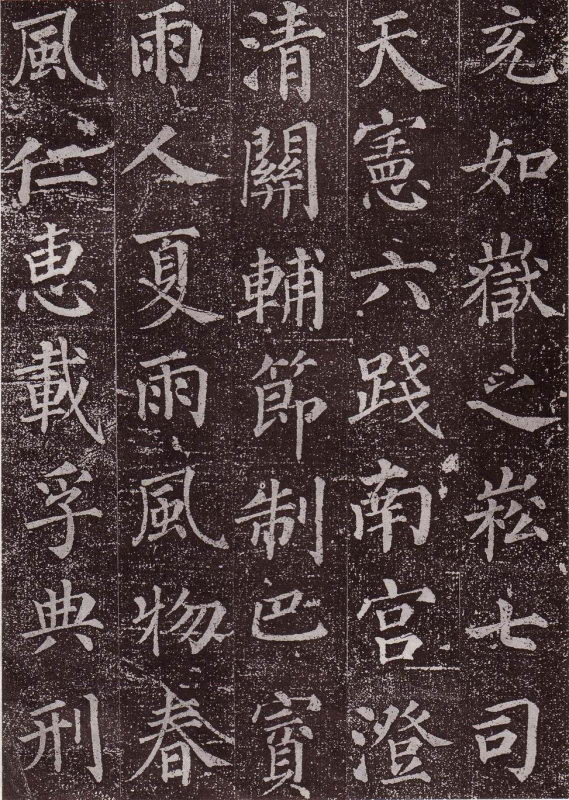 充如嶽之崧七司
天憲六踐南宮澄
清關輔節制巴賨
雨人夏雨風物春
風仁恵載孚典刑